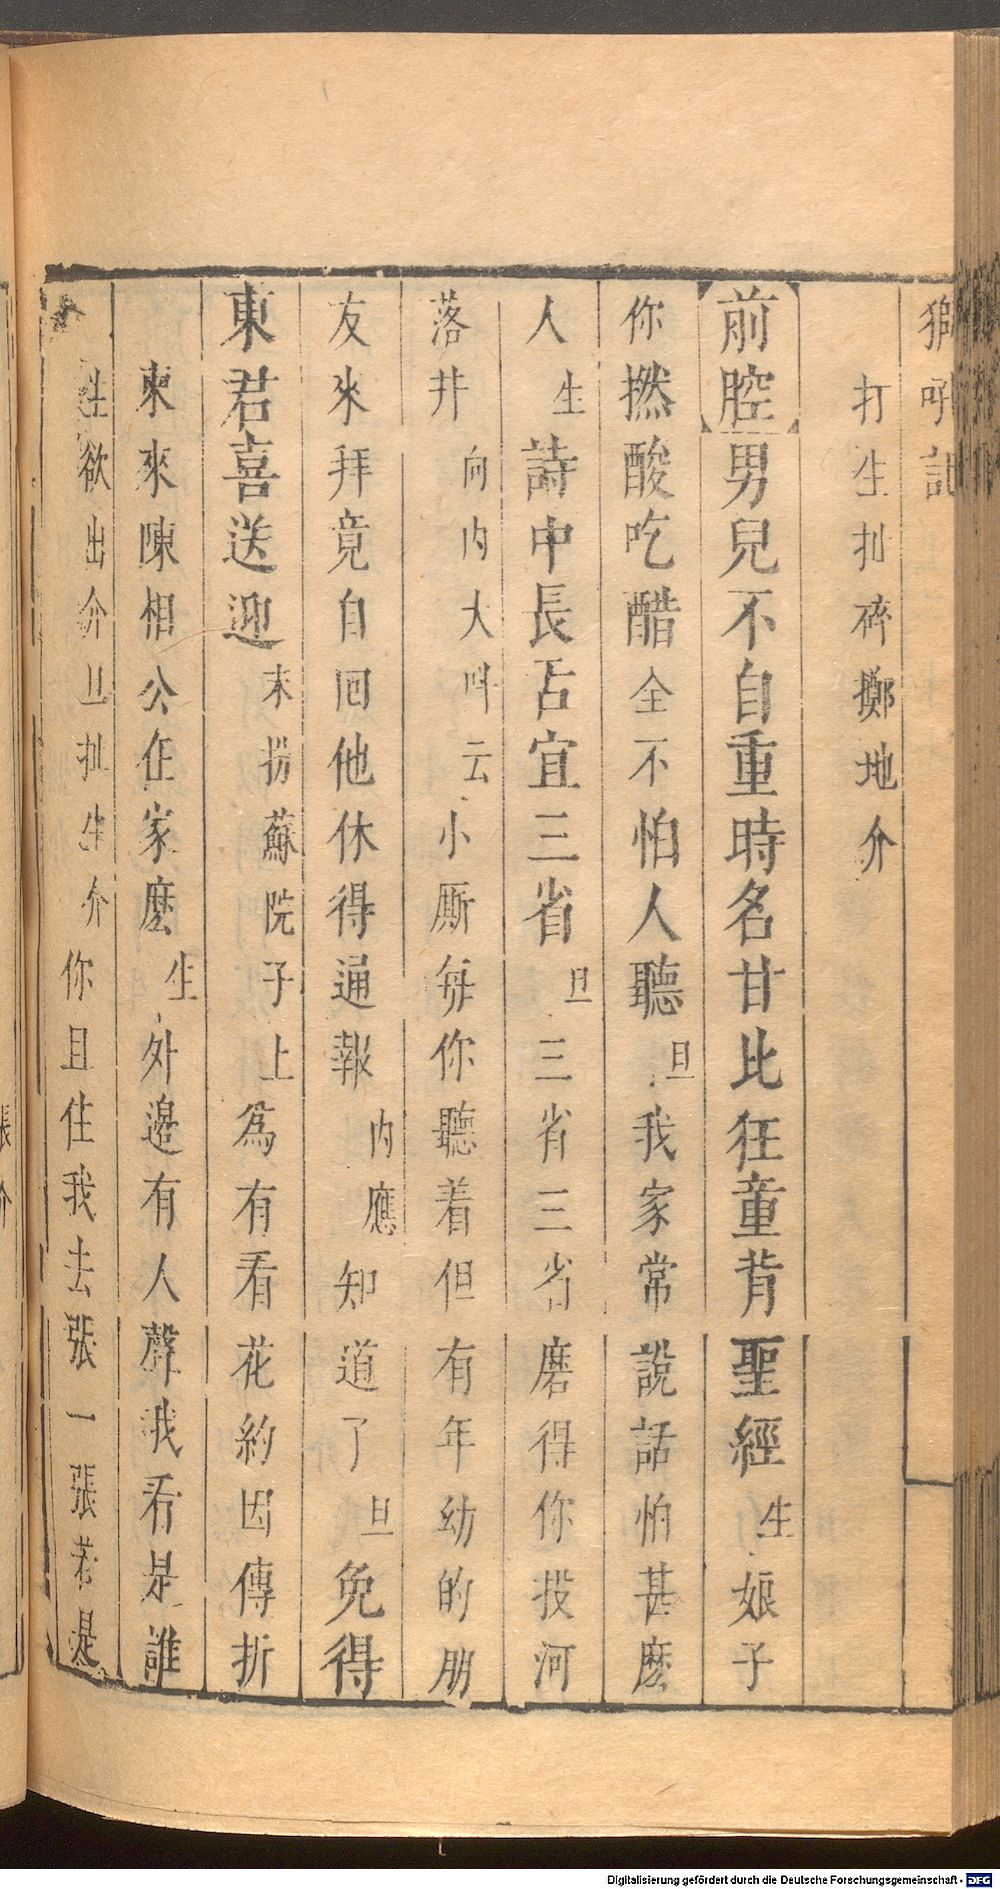 獅吼記
打生扯碎擲地介
前腔男兒不自重時名甘比狂童背聖經生娘子
你撚酸吃醋全不怕人聽旦我家常說話怕甚麽
人生詩中長舌宜三省旦三省三省磨得你投河
落井向內大叫云小厮每你聽着但有年幼的朋
友來拜竟自回他休得通報內應知道了旦免得
東君喜送迎末扮蘇院子上爲有看花約因傳折
柬來陳相公在家麽生外邊有人聲我看是誰
生欲出介旦扯生介你且住我去張一張若是
張
介
Digitalisierung gefördert durch die Deutsche Forschungsgemeinschaft - DFG